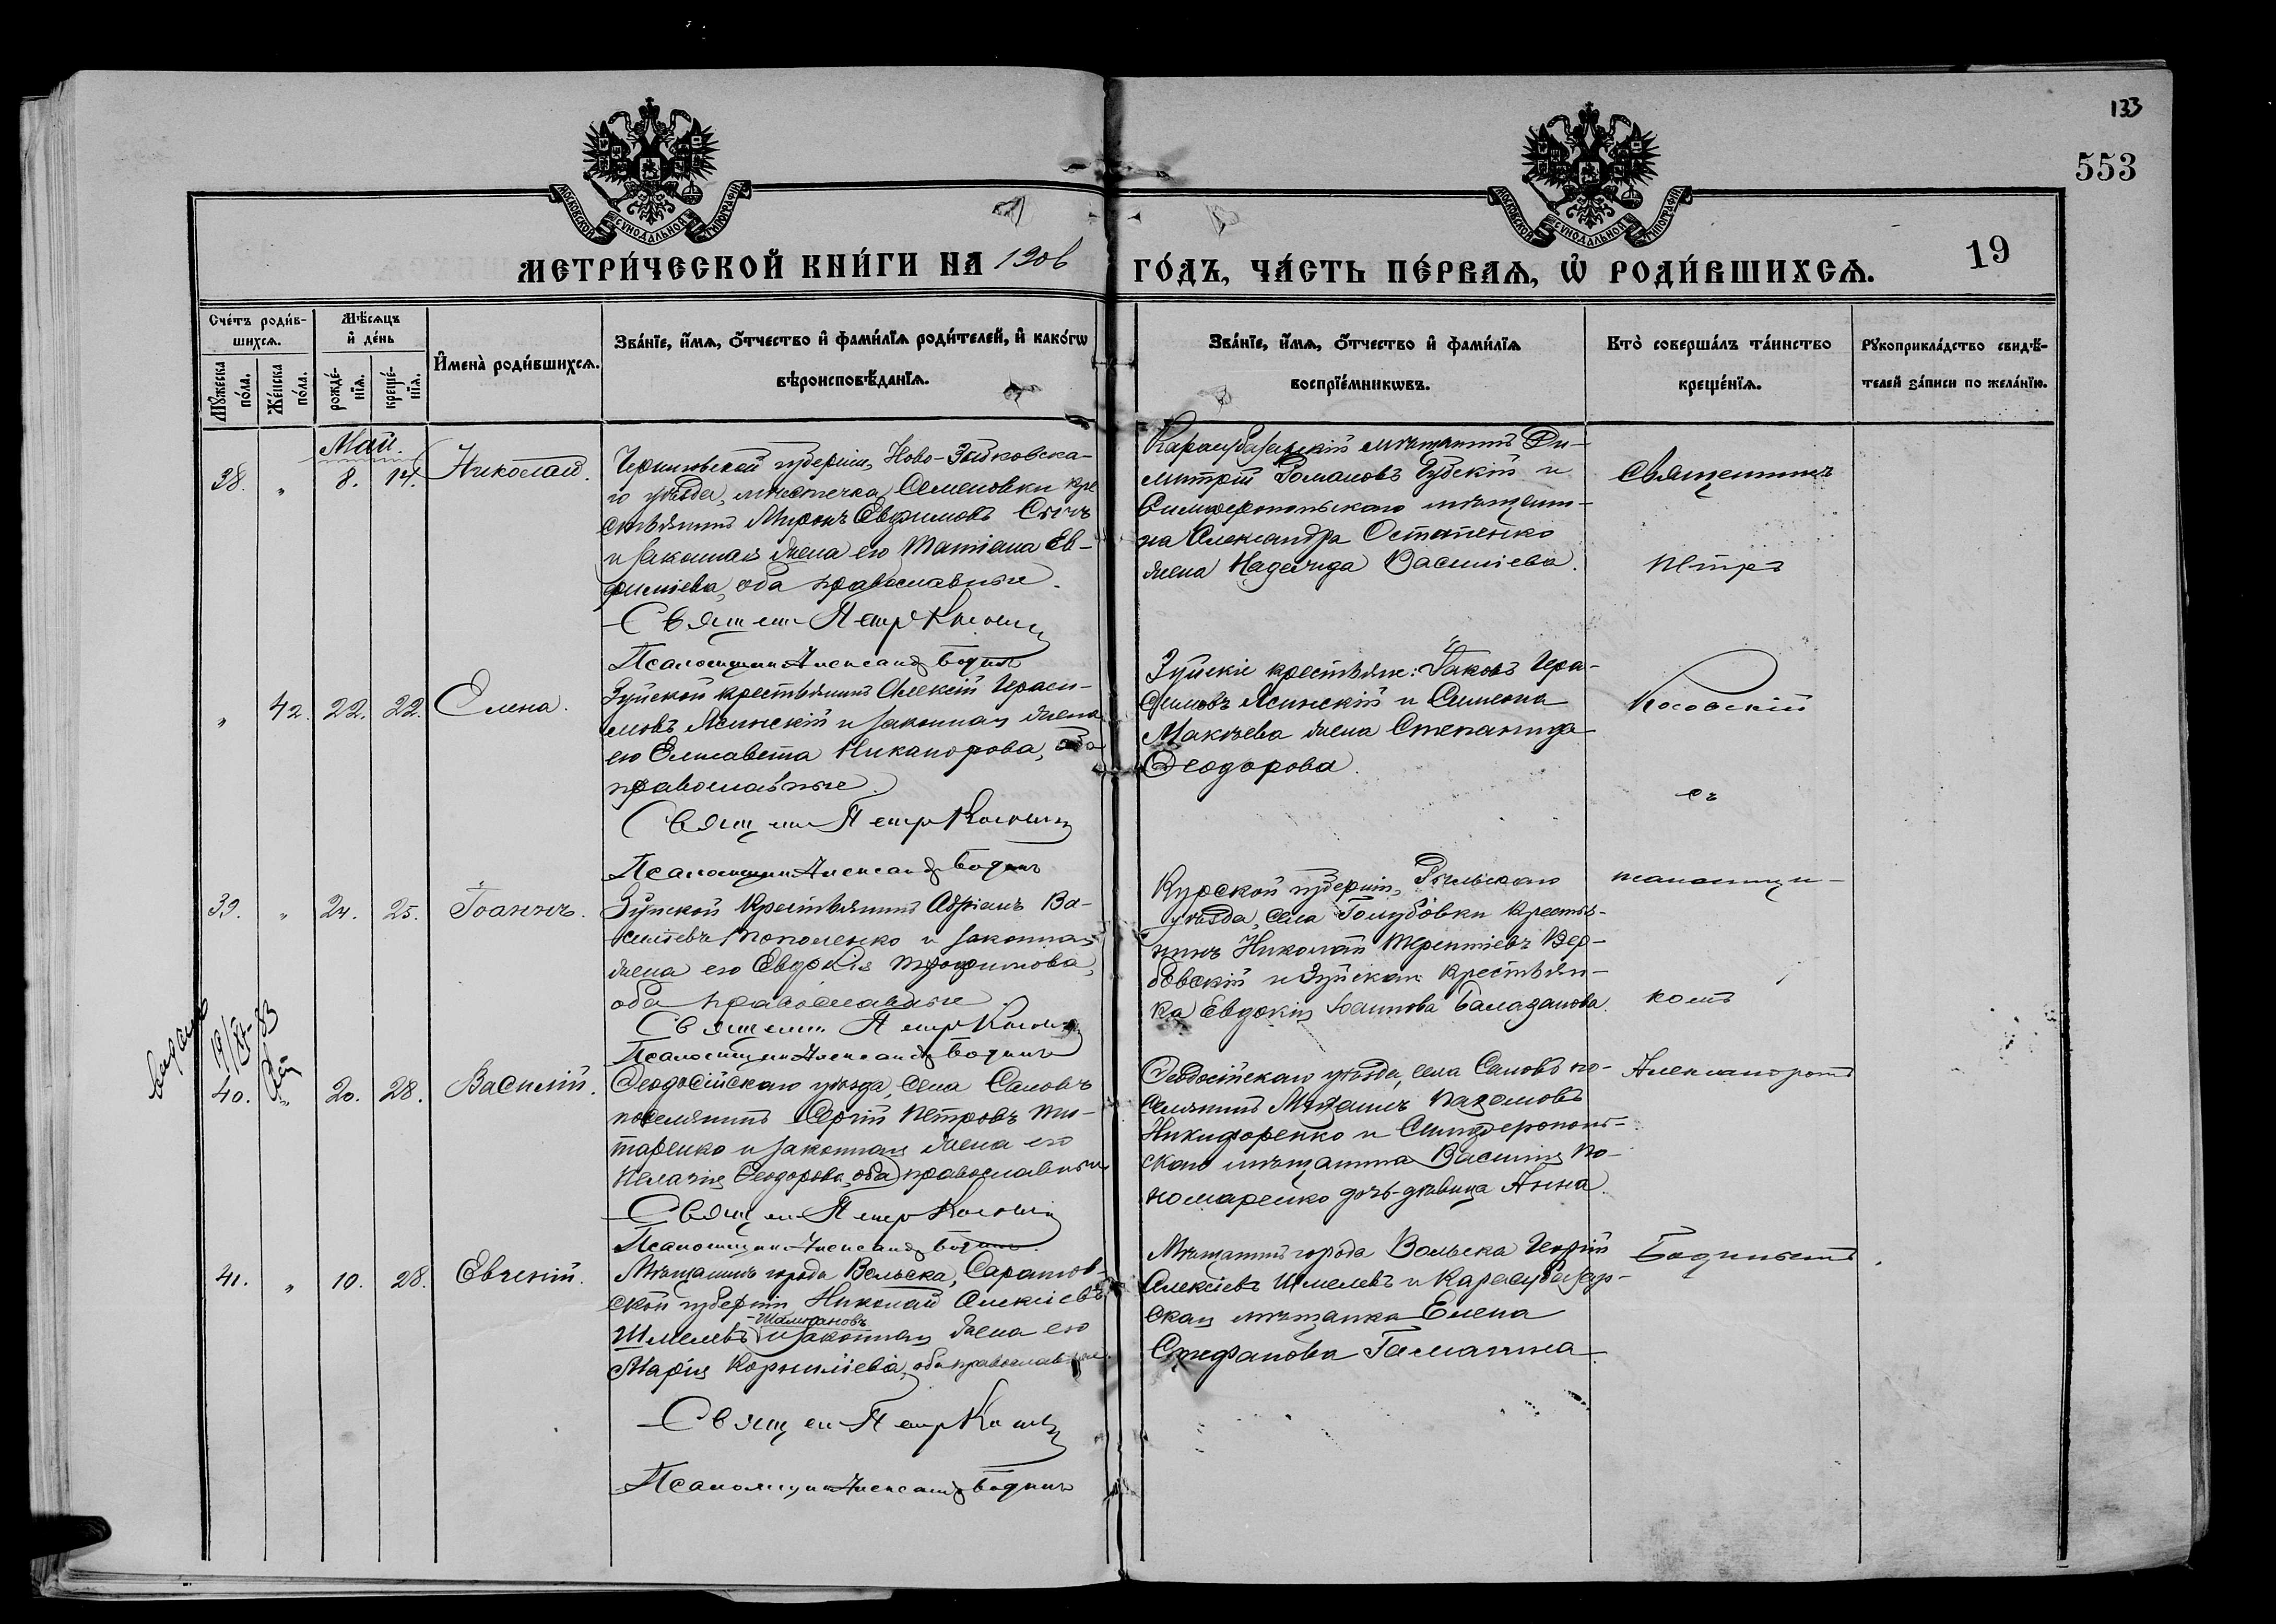 133
553
19
МОСКОВСКОЙ СѴНОДАЛЬНОЙ ТИПОГРАФІИ
МОСКОВСКОЙ СѴНОДАЛЬНОЙ ТИПОГРАФІИ
МЕТРИ́ЧЕСКОЙ КНИ́ГИ НА 1906
ГО́ДЪ, ЧА́СТЬ ПЕ́РВАѦ, Ѡ҆ РОДИ́ВШИХСѦ.
Сче́тъ роди́в-
шихсѧ.
Мѣ́сѧцъ
и҆ де́нь
Мꙋ́жеска
по́ла.
Же́нска
по́ла.
рожде́-
нїѧ.
креще́-
нїѧ.
И҆мена̀ роди́вшихсѧ.
Зва́нїе, и҆́мѧ, ѻ҆́тчество и҆ фами́лїѧ роди́телей, и҆ како́гѡ
вѣроисповѣ́данїѧ.
Зва́нїе, и҆́мѧ, ѻ҆́тчество и҆ фами́лїѧ
воспрїе́мникѡвъ.
Кто̀ соверша́лъ та́инство
креще́нїѧ.
Рꙋкоприкла́дство свидѣ́-
телей за́писи по жела́нїю.
Май.
38. " 8. 14. Николай.
Черниговской губерніи, Ново-Зыбковска-
го уѣзда, мѣстечка Семеновки кре
стьянинъ Миронъ Евфимовъ
и законная жена его Татіана Ев-
фиміева, оба православные.
Священ Петр Косовскій
Псаломщик Александр Бодинъ
Карасубазарскій мѣщанинъ Ди-
митрій Романовъ Губскій и
Симферопольскаго мѣщани-
на Александра Остапенко
жена Надежда Васильева.
Священникъ
Петръ
" 42. 22. 22. Елена.
Зуйской крестьянинъ Алексій Гераси-
мовъ Ясинскій и законная жена
его Елисавета Никанорова, оба
православные.
Священ Петр Косовскій
Псаломщик Александр Бодинъ
Зуйскіе крестьяне: Іаковъ Гера-
симовъ Ясинскій и Симеона
Макѣева жена Степанида
Ѳеодорова.
Косовскій
съ
39. " 24. 25. Іоаннъ.
Зуйской крестьянинъ Адріанъ Ва-
сильевъ Кононенко и законная
жена его Евдокія Трофимова,
оба православные.
Священ Петр Косовскій
Псаломщик Александр Бодинъ
Курской губерніи, Рыльскаго
уѣзда, села Голубовки крестья-
нинъ Николай Терентіевъ Вер-
бовскій и Зуйская крестьян-
ка Евдокія Іоаннова Балабанова.
псаломщи-
комъ
40. " 20. 28. Василій.
Ѳеодосійскаго уѣзда, села Саловъ
поселянинъ Сергій Петровъ Ти-
таренко и законная жена его
Пелагія Ѳеодорова, оба православные
Священ Петр Косовскій
Псаломщик Александр Бодинъ
Ѳеодосійскаго уѣзда, села Саловъ по-
селянинъ
Никифоренко и Симферополь-
скаго мѣщанина Василія По-
номаренко дочь-дѣвица Анна.
Александромъ
41. " 10. 28. Евгеній.
Мѣщанинъ города Вольска, Саратов-
ской губерніи Николай Алексіевъ
Шмелевъ и законная жена его
Марія Корниліева, оба православные.
Священ Петр Косовскій
Псаломщик Александр Бодинъ
Мѣщанинъ города Вольска Георгій
Алексіевъ Шмелевъ и Карасубазар-
ская мѣщанка Елена
Стефанова Гаманина.
Бодинымъ.